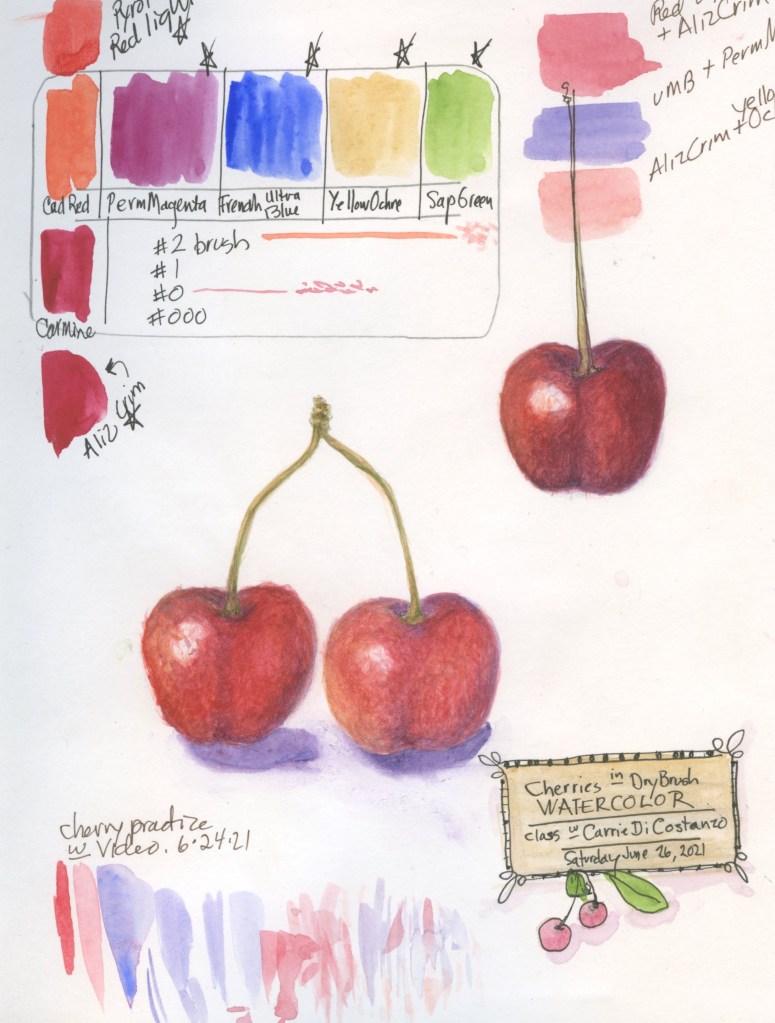 Red light
Red
+ AlizCrim
UMB + PermM
yello
AlizCrim + Oc
Cad Red
Perm Magenta
French Ultra Blue
Yellow Ochre
Sap Green
#2 brush
#1
#0
#000
Carmine
Aliz Crim
cherry practize
w Video. 6·24·21
Cherries in DryBrush
WATERCOLOR
class w Carrie Di Costanzo
Saturday June 26, 2021